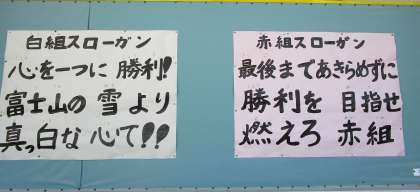 白組スローガン
心を一つに 勝利!
富士山の 雪 より
真っ白な 心で!!
赤組スローガン
最後まであきらめずに
勝利を 目指せ
燃えろ 赤組